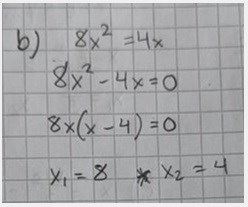 b) 8x² = 4x
8x² - 4x = 0
8x(x - 4) = 0
x₁ = 8 x₂ = 4